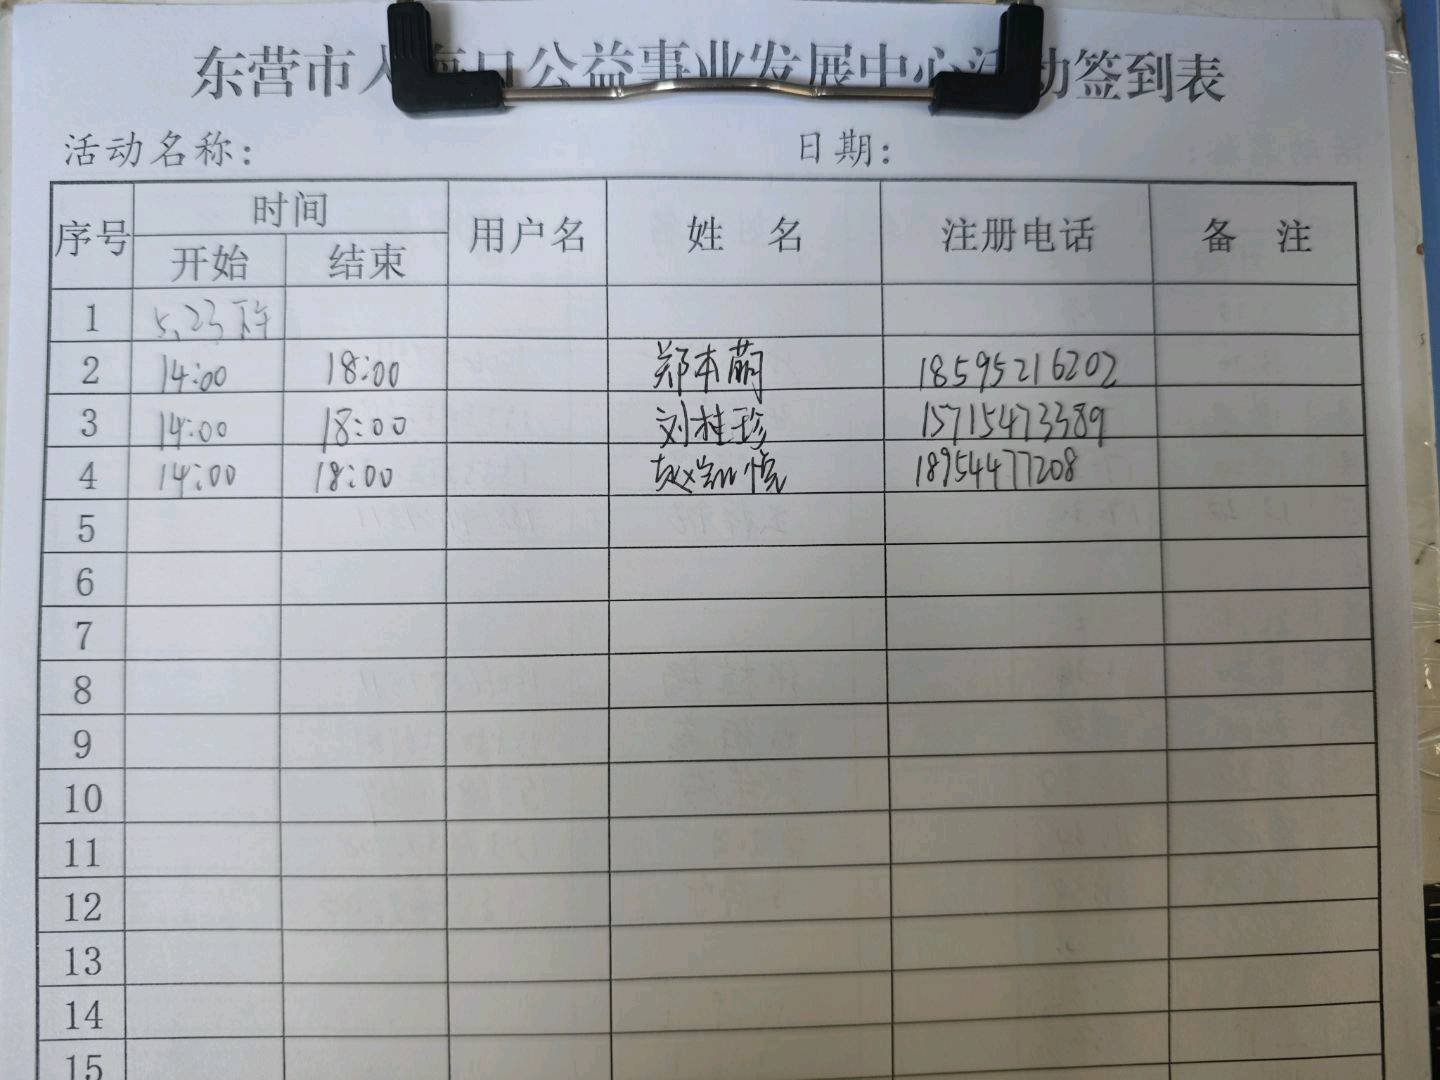 东营市入海口公益事业发展中心活动签到表
活动名称: 日期:
序号 时间 用户名 姓 名 注册电话 备 注
开始 结束
1 5.23下午
2 14:00 18:00 郑本萌 18595216202
3 14:00 18:00 刘桂珍 15715473389
4 14:00 18:00 赵 悦 18954477208
5
6
7
8
9
10
11
12
13
14
15